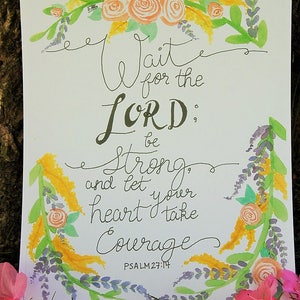 Wait
for the
LORD;
be
Strong,
and let
your
heart take
Courage
PSALM 27:14